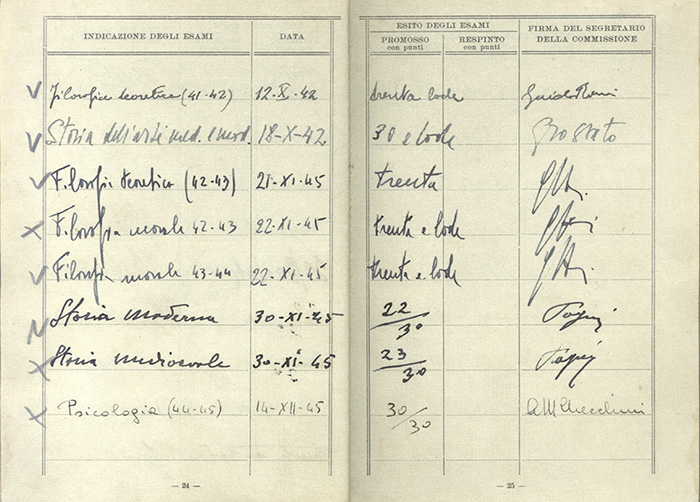 INDICAZIONE DEGLI ESAMI DATA ESITO DEGLI ESAMI FIRMA DEL SEGRETARIO DELLA COMMISSIONE
PROMOSSO con punti RESPINTO con punti
Filosofia teoretica (41-42) 12-X-42 trenta lode
Storia dell'arte med. e mod. 18-X-42 30 e lode
Filosofia teoretica (42-43) 21-XI-45 trenta
Filosofia morale 42-43 22-XI-45 trenta e lode
Filosofia morale 43-44 22-XI-45 trenta e lode
Storia moderna 30-XI-45 22/30
Storia medioevale 30-XI-45 23/30
Psicologia (44-45) 14-XII-45 30/30
— 24 — — 25 —